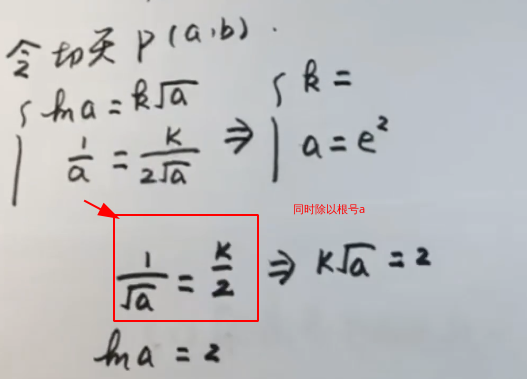 令切点 P(a,b).
{ ln a = k√a
1/a = k/(2√a) ⇒ { k =
a = e²
同时除以根号a
1/√a = k/2 ⇒ k√a = 2
ln a = 2